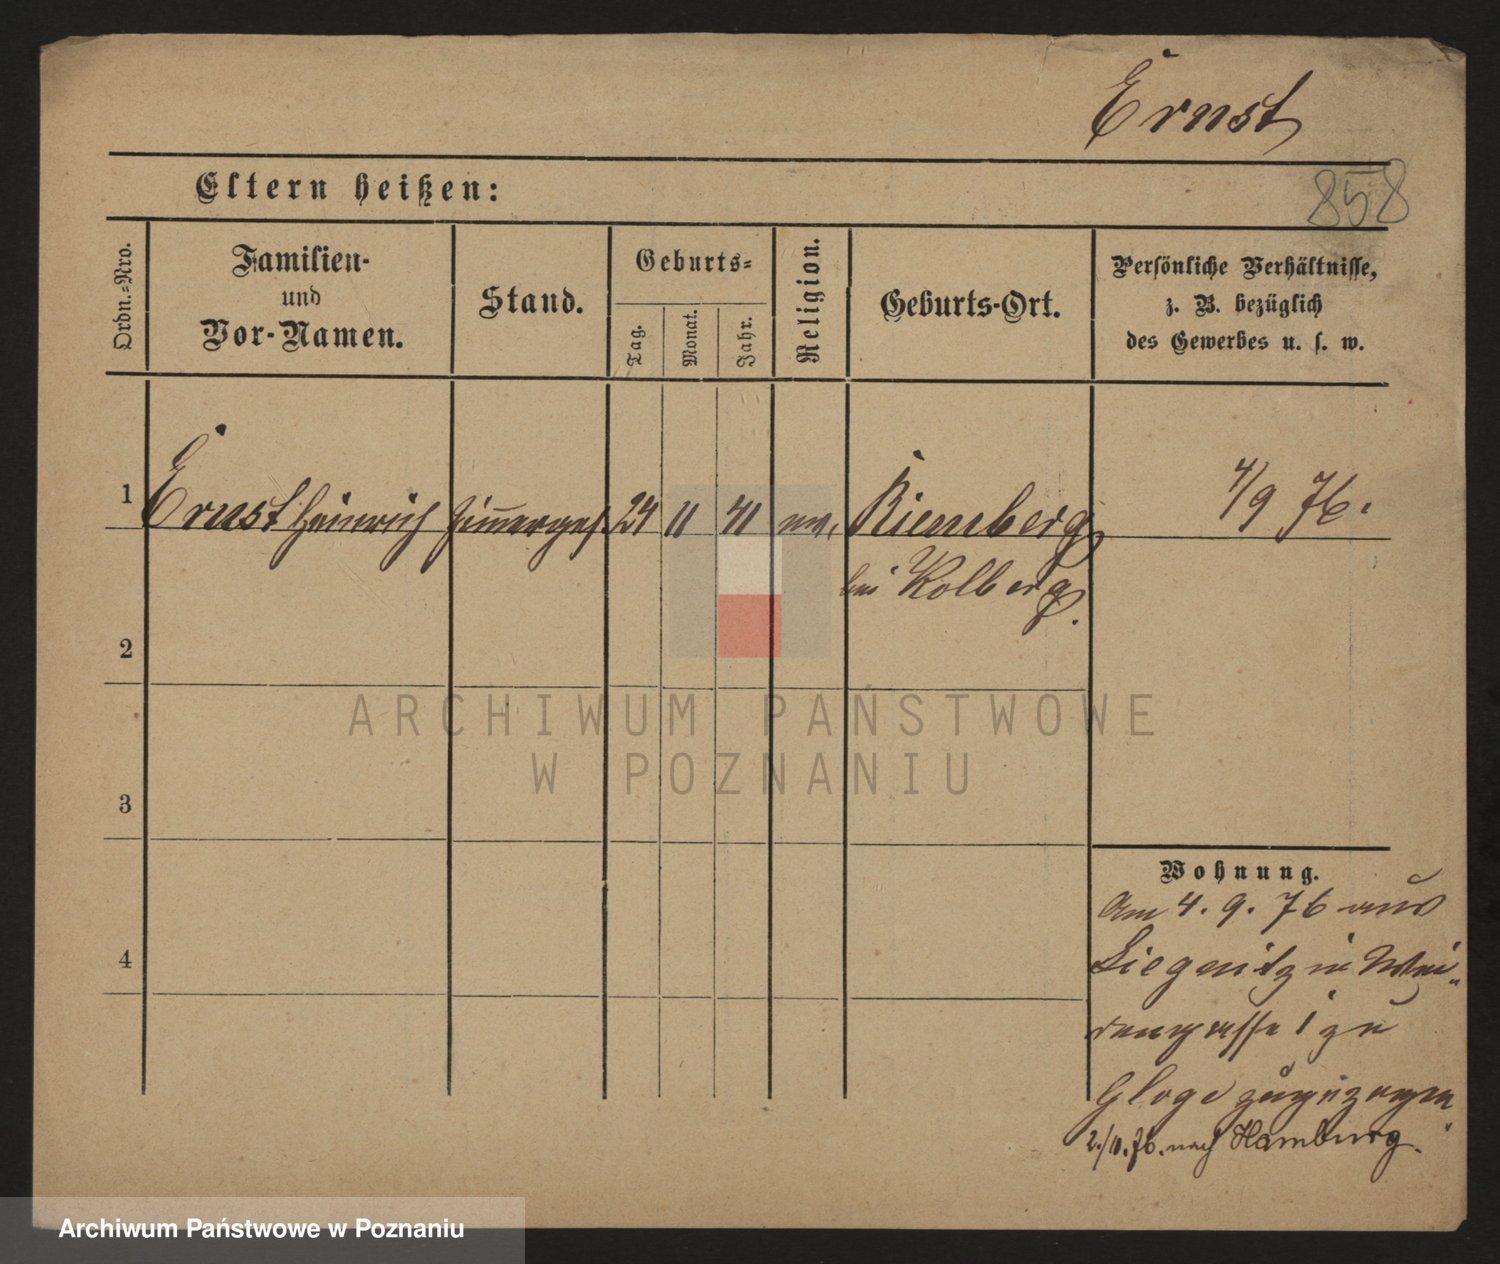 Ernst
858
Eltern heißen:
Ordn.-Nro.
Familien-
und
Vor-Namen.
Stand.
Geburts-
Tag.
Monat.
Jahr.
Religion.
Geburts-Ort.
Persönliche Verhältnisse,
z. B. bezüglich
des Gewerbes u. s. w.
1 Ernst Heinrich Zimergs. 24 11 41 ev. Rienberg 4/9 76.
bei Kolberg.
2
3
4
Wohnung.
Am 4. 9. 76 aus
Liegnitz in Wei-
dengasse 1 zu
Gloge zugezogen.
2./10.76. nach Hamburg.
ARCHIWUM PAŃSTWOWE
W POZNANIU
Archiwum Państwowe w Poznaniu